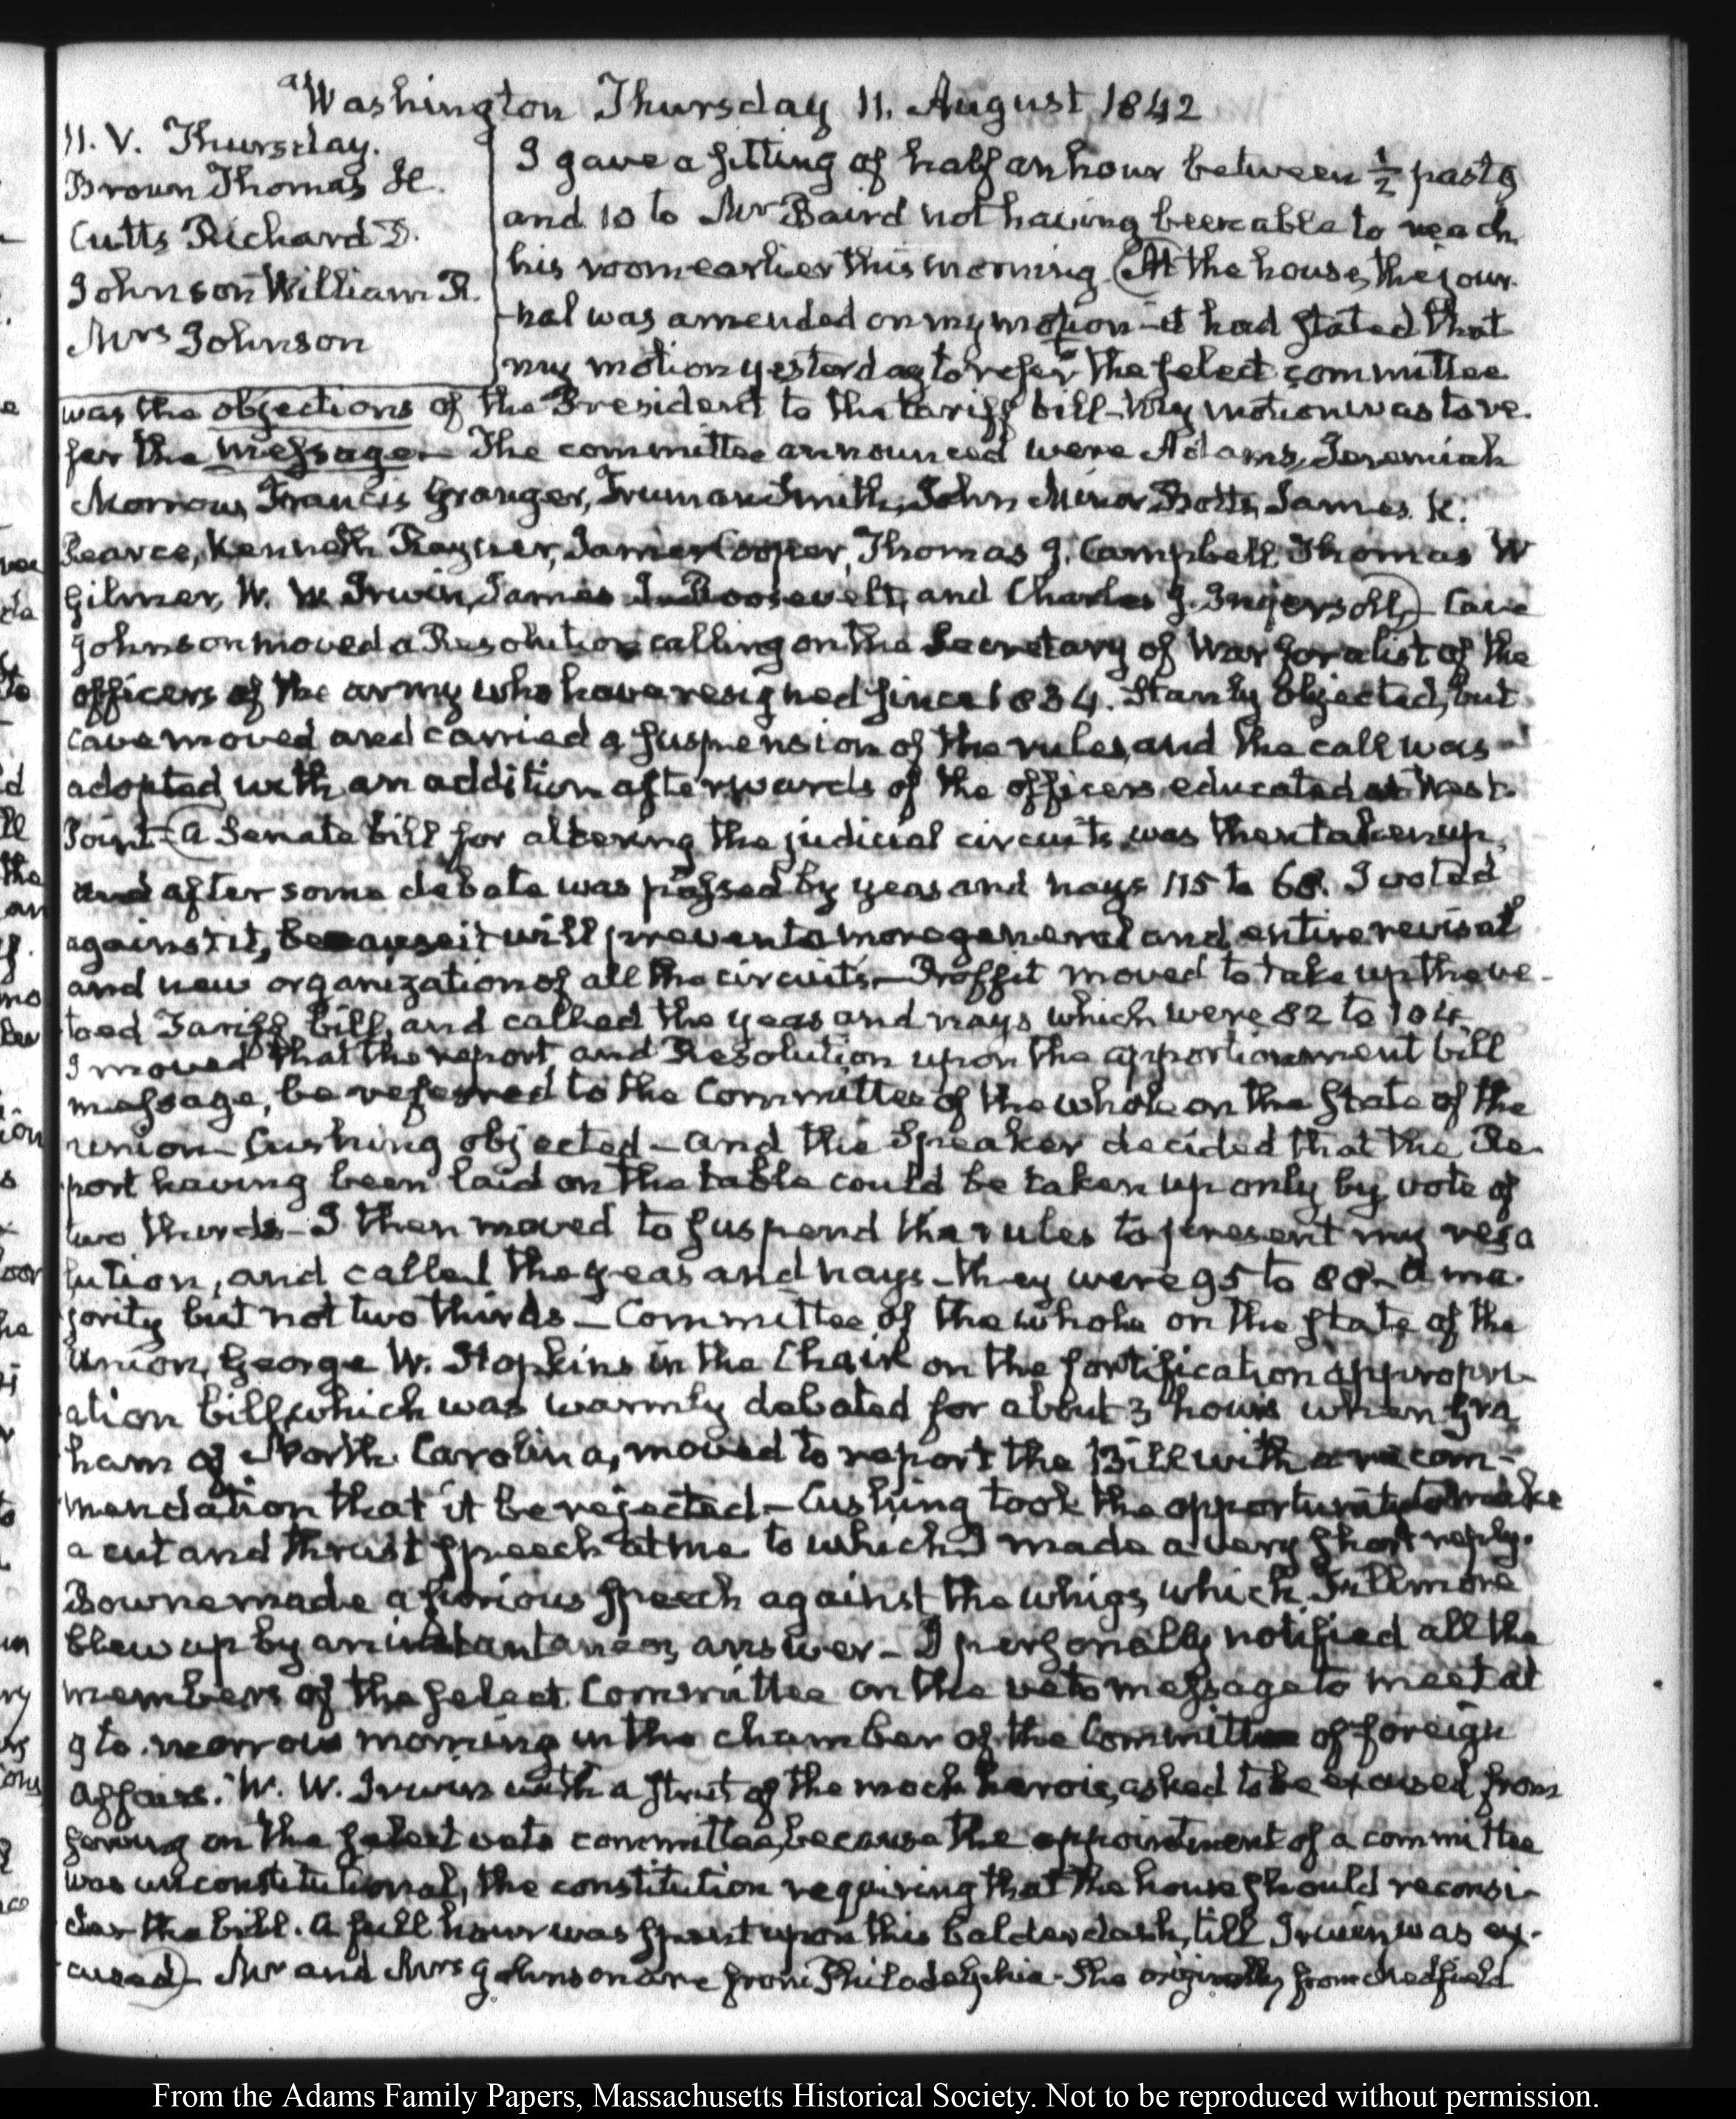 Washington Thursday 11. August 1842
11. V. Thursday.
Brown Thomas H.
Cutts Richard D.
Johnson William R.
Mrs Johnson
I gave a sitting of half an hour between ½ past 9
and 10 to Mr Baird not having been able to reach
his room earlier this morning. (At the house, the jour-
nal was amended on my motion - it had stated that
my motion yesterday to refer to the select committee
was the objections of the President to the tariff bill - My motion was to re-
fer the message - The committee announced were Adams, Jeremiah
Morrow, Francis Granger, Truman Smith, John Minor Botts, James A.
Pearce, Kenneth Rayner, James Cooper, Thomas J. Campbell, Thomas W
Gilmer, W. W. Irwin, James I. Roosevelt, and Charles J. Ingersoll,) - Cave
Johnson moved a Resolution calling on the Secretary of War for a list of the
officers of the army who have resigned since 1834. Stanly objected, but
Cave moved and carried a suspension of the rules, and the call was
adopted with an addition afterwards of the officers educated at West-
Point - (A Senate bill for altering the judicial circuits was then taken up,
and after some debate was passed by yeas and nays 115 to 68. I voted
against it, because it will prevent a more general and entire revisal
and new organization of all the circuits. - Proffit moved to take up the ve-
toed Tariff bill, and called the yeas and nays which were 82 to 104.
I moved that the report and Resolution upon the apportionment bill
message, be referred to the Committee of the whole on the State of the
union - Cushing objected - and the Speaker decided that the Re-
port having been laid on the table could be taken up only by vote of
two thirds - I then moved to suspend the rules to present my reso
lution, and called the yeas and nays - they were 95 to 88 - a ma-
jority but not two thirds. - Committee of the whole on the state of the
Union, George W. Hopkins in the Chair on the fortification appropri-
ation bill, which was warmly debated for about 3 hours when Gra
ham of North Carolina, moved to report the Bill with a recom-
mendation that it be rejected - Cushing took the opportunity to make
a cut and thrust speech at me to which I made a very short reply.
Bowne made a furious speech against the whigs, which Fillmore
blew up by an instantaneous answer - I personally notified all the
members of the select Committee on the veto message to meet at
9 to-morrow morning in the chamber of the Committee of foreign
Affairs. W. W. Irwin with a strut of the mock heroic, asked to be excused from
serving on the select veto committee, because the appointment of a committee
was unconstitutional, the constitution requiring that the house should reconsi-
der the bill. A full hour was spent upon this balderdash, till Irwin was ex-
cused) - Mr and Mrs Johnson are from Philadelphia - She originally from Medfield
From the Adams Family Papers, Massachusetts Historical Society. Not to be reproduced without permission.